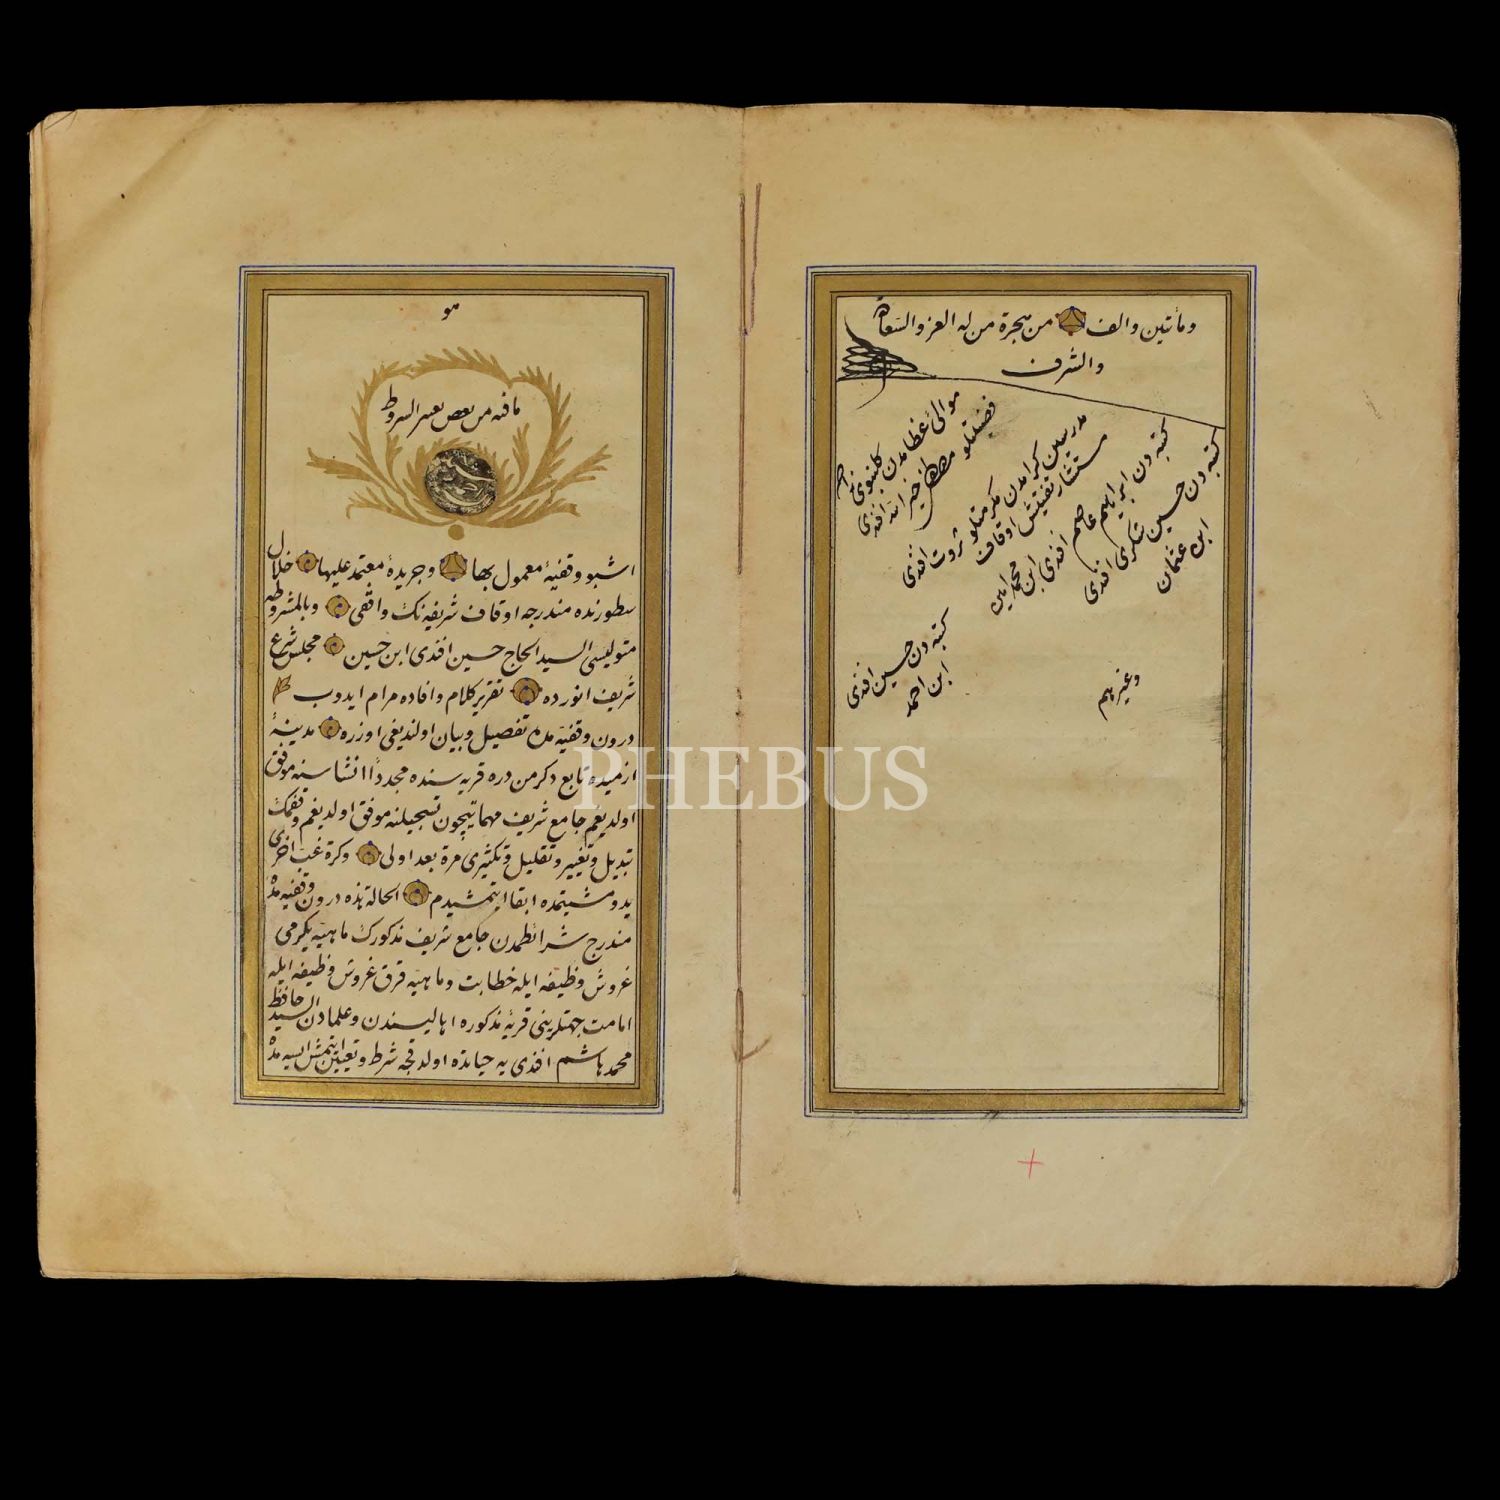 ومأتين والف من هجرة من له العز والسعاده
والشرف
موالئ عظامدن كلنبوی
فضيلتلو خير الله افندی
مدرسين كرامدن مكرمتلو ثروت افندی
مستشار تفتيش اوقاف
كتبه دن ابراهيم عاصم افندی ابن محمد امين
كتبه دن حسين شكری افندی
ابن عثمان
كتبه دن حسين افندی
ابن احمد
وغيرهم
هو
ما فيه من بعض تغيير الشروط
اشبو وقفيۀ معمول بها وجريدۀ معتمد عليها خلال
سطورنده مندرجه اوقاف شريفه نك واقفی وبالمشروطه
متوليسی السيد الحاج حسين افندی ابن حسين مجلس شرع
شريف انورده تقرير كلام وافاده مرام ايدوب
درون وقفيه مده تفصيل وبيان اولنديغی اوزره مدينۀ
ازميده تابع دكرمن دره قريه سنده مجددا انشاسنه موفق
اولديغم جامع شريف مهماتيچون تسجيلنه موفق اولديغم وقفمك
تبديل وتغيير وتقليل وتكثيری مرة بعد اولی وكرة غب اخری
يد ومشيتمده ابقا ايتمشيدم الحالة هذه درون وقفيه مده
مندرج شرائطمدن جامع شريف مذكورك ماهيه يكرمی
غروش وظيفه ايله خطابت وماهيه قرق غروش وظيفه ايله
امامت جهتلرينی قريۀ مذكوره اهاليسندن وعلمادن السيد حافظ
محمد هاشم افندی يه حياتده اولدقجه شرط وتعيين ايتمش ايسه مده
PHEBUS